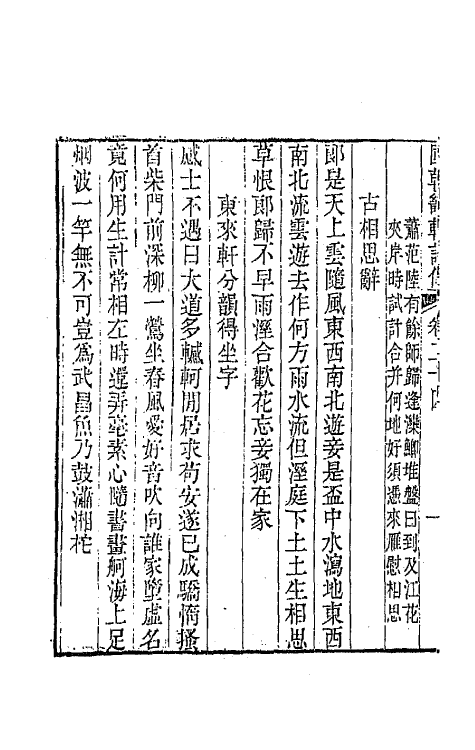 國朝詞輯詩傳 卷二十四 一
蕭范陸有餘師歸逢潑鯽堆盤日到及江花
夾岸時試計合并何地好須憑來雁慰相思
古相思辭
郎是天上雲隨風東西南北遊妾是盃中水瀉地東西
南北流雲遊去作何方雨水流但溼庭下土土生相思
草恨郎歸不早雨溼合歡花忘妾獨在家
東來軒分韻得坐字
感士不遇曰大道多轗軻閒居求苟安遂已成驕惰搔
首柴門前深柳一鶯坐春風愛好音吹向誰家墮虛名
竟何用生計常相左時還弄毫素心隨書畫舸海上足
烟波一竿無不可豈為武昌魚乃鼓瀟湘柁